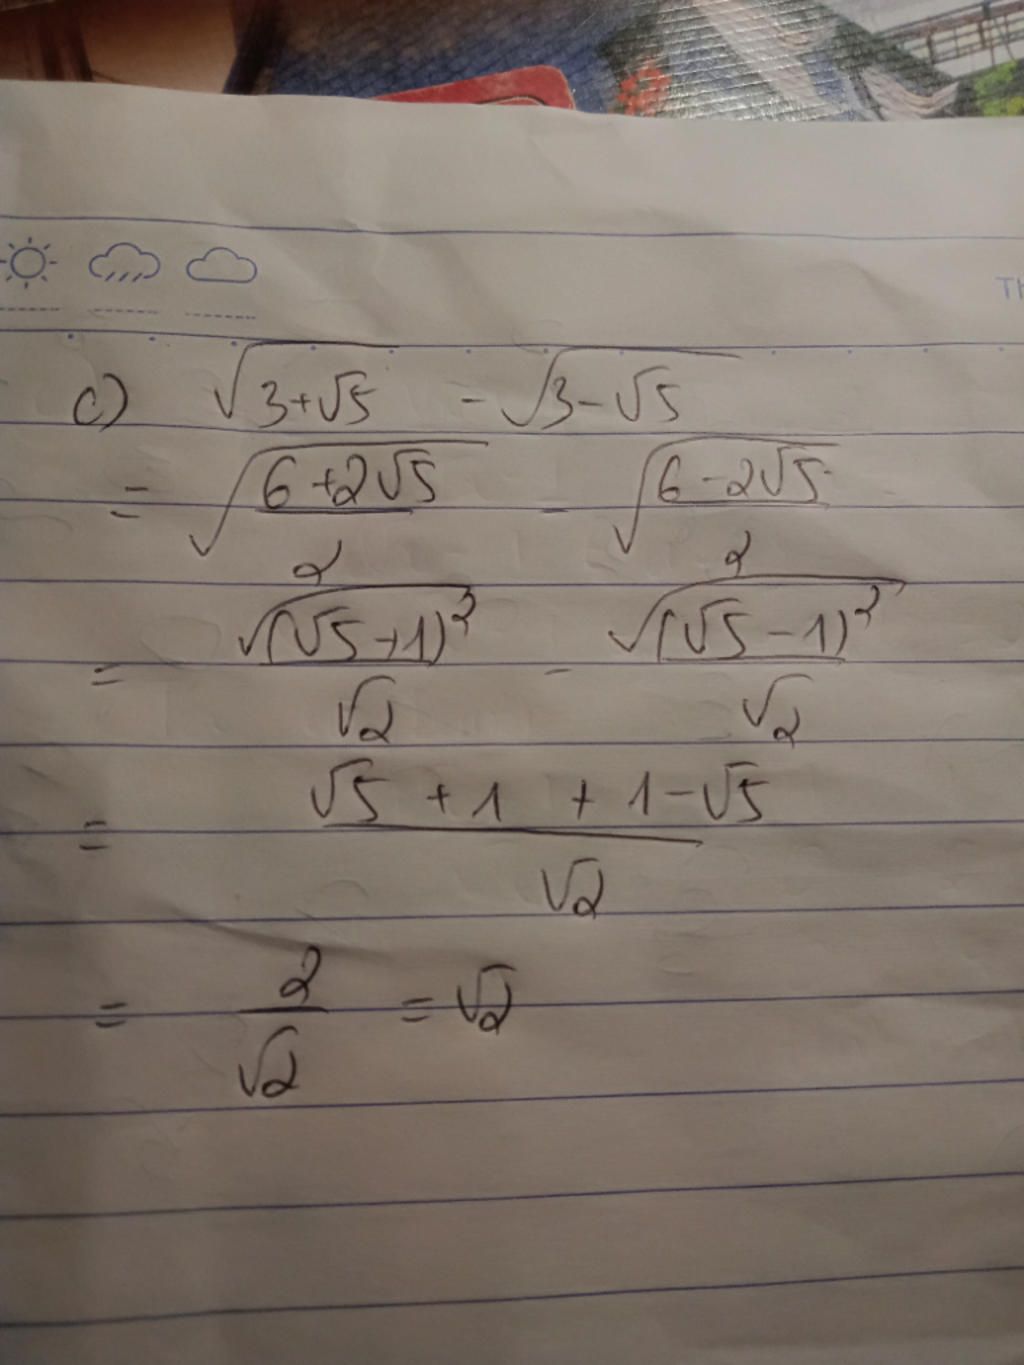 TH
c) √(3+√5) - √(3-√5)
= √((6+2√5)/2) - √((6-2√5)/2)
= √((√5+1)²)/√2 - √((√5-1)²)/√2
= (√5 + 1 + 1-√5)/√2
= 2/√2 = √2